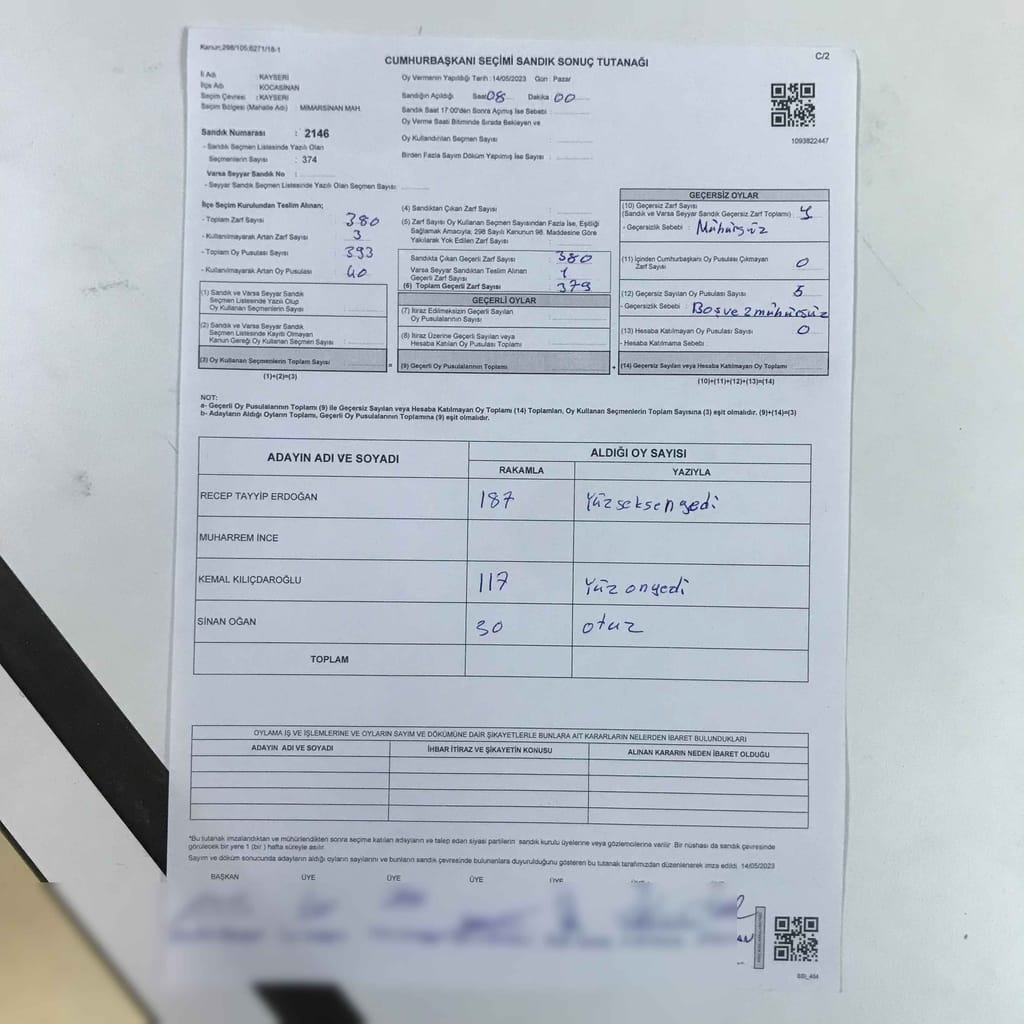 Kanun:298/105:6271/18-1
C/2
CUMHURBAŞKANI SEÇİMİ SANDIK SONUÇ TUTANAĞI
İl Adı : KAYSERİ
İlçe Adı : KOCASİNAN
Seçim Çevresi : KAYSERİ
Seçim Bölgesi (Mahalle Adı) : MİMARSİNAN MAH.
Sandık Numarası : 2146
- Sandık Seçmen Listesinde Yazılı Olan
Seçmenlerin Sayısı : 374
Varsa Seyyar Sandık No :
- Seyyar Sandık Seçmen Listesinde Yazılı Olan Seçmen Sayısı
Oy Vermenin Yapıldığı Tarih : 14/05/2023 Gün : Pazar
Sandığın Açıldığı Saat 08 Dakika 00
Sandık Saat 17:00'den Sonra Açılmış İse Sebebi :
Oy Verme Saati Bitiminde Sırada Bekleyen ve
Oy Kullandırılan Seçmen Sayısı :
Birden Fazla Sayım Döküm Yapılmış İse Sayısı :
1093822447
İlçe Seçim Kurulundan Teslim Alınan;
- Toplam Zarf Sayısı : 380
- Kullanılmayarak Artan Zarf Sayısı : 3
- Toplam Oy Pusulası Sayısı : 393
- Kullanılmayarak Artan Oy Pusulası : 40
(1) Sandık ve Varsa Seyyar Sandık
Seçmen Listesinde Yazılı Olup
Oy Kullanan Seçmenlerin Sayısı :
(2) Sandık ve Varsa Seyyar Sandık
Seçmen Listesinde Kayıtlı Olmayan
Kanun Gereği Oy Kullanan Seçmen Sayısı :
(3) Oy Kullanan Seçmenlerin Toplam Sayısı
(1)+(2)=(3)
(4) Sandıktan Çıkan Zarf Sayısı :
(5) Zarf Sayısı Oy Kullanan Seçmen Sayısından Fazla İse, Eşitliği
Sağlamak Amacıyla; 298 Sayılı Kanunun 98. Maddesine Göre
Yakılarak Yok Edilen Zarf Sayısı :
Sandıkta Çıkan Geçerli Zarf Sayısı : 380
Varsa Seyyar Sandıktan Teslim Alınan
Geçerli Zarf Sayısı : 1
(6) Toplam Geçerli Zarf Sayısı : 379
GEÇERLİ OYLAR
(7) İtiraz Edilmeksizin Geçerli Sayılan
Oy Pusulasının Sayısı :
(8) İtiraz Üzerine Geçerli Sayılan veya
Hesaba Katılan Oy Pusulası Toplamı :
(9) Geçerli Oy Pusulalarının Toplamı
GEÇERSİZ OYLAR
(10) Geçersiz Zarf Sayısı
(Sandık ve Varsa Seyyar Sandık Geçersiz Zarf Toplamı) :
- Geçersizlik Sebebi : Mühürsüz
(11) İçinden Cumhurbaşkanı Oy Pusulası Çıkmayan
Zarf Sayısı : 0
(12) Geçersiz Sayılan Oy Pusulası Sayısı : 5
- Geçersizlik Sebebi : Boş ve 2 mühürsüz
(13) Hesaba Katılmayan Oy Pusulası Sayısı : 0
- Hesaba Katılmama Sebebi :
(14) Geçersiz Sayılan veya Hesaba Katılmayan Oy Toplamı
(10)+(11)+(12)+(13)=(14)
NOT:
a- Geçerli Oy Pusulalarının Toplamı (9) ile Geçersiz Sayılan veya Hesaba Katılmayan Oy Toplamı (14) Toplamları, Oy Kullanan Seçmenlerin Toplam Sayısına (3) eşit olmalıdır. (9)+(14)=(3)
b- Adayların Aldığı Oyların Toplamı, Geçerli Oy Pusulalarının Toplamına (9) eşit olmalıdır.
ADAYIN ADI VE SOYADI
ALDIĞI OY SAYISI
RAKAMLA YAZIYLA
RECEP TAYYİP ERDOĞAN 187 Yüzseksenyedi
MUHARREM İNCE
KEMAL KILIÇDAROĞLU 117 Yüz onyedi
SİNAN OĞAN 30 otuz
TOPLAM
OYLAMA İŞ VE İŞLEMLERİNE VE OYLARIN SAYIM VE DÖKÜMÜNE DAİR ŞİKAYETLERLE BUNLARA AİT KARARLARIN NELERDEN İBARET BULUNDUKLARI
ADAYIN ADI VE SOYADI İHBAR İTİRAZ VE ŞİKAYETİN KONUSU ALINAN KARARIN NEDEN İBARET OLDUĞU
*Bu tutanak imzalandıktan ve mühürlendikten sonra seçime katılan adayların ve talep eden siyasi partilerin sandık kurulu üyelerine veya gözlemcilerine verilir. Bir nüshası da sandık çevresinde
görülecek bir yere 1 (bir) hafta süreyle asılır.
Sayım ve döküm sonucunda adayların aldığı oyların sayılarını ve bunların sandık çevresinde bulunanlara duyurulduğunu gösteren bu tutanak tarafımızdan düzenlenerek imza edildi. 14/05/2023
BAŞKAN ÜYE ÜYE ÜYE ÜYE